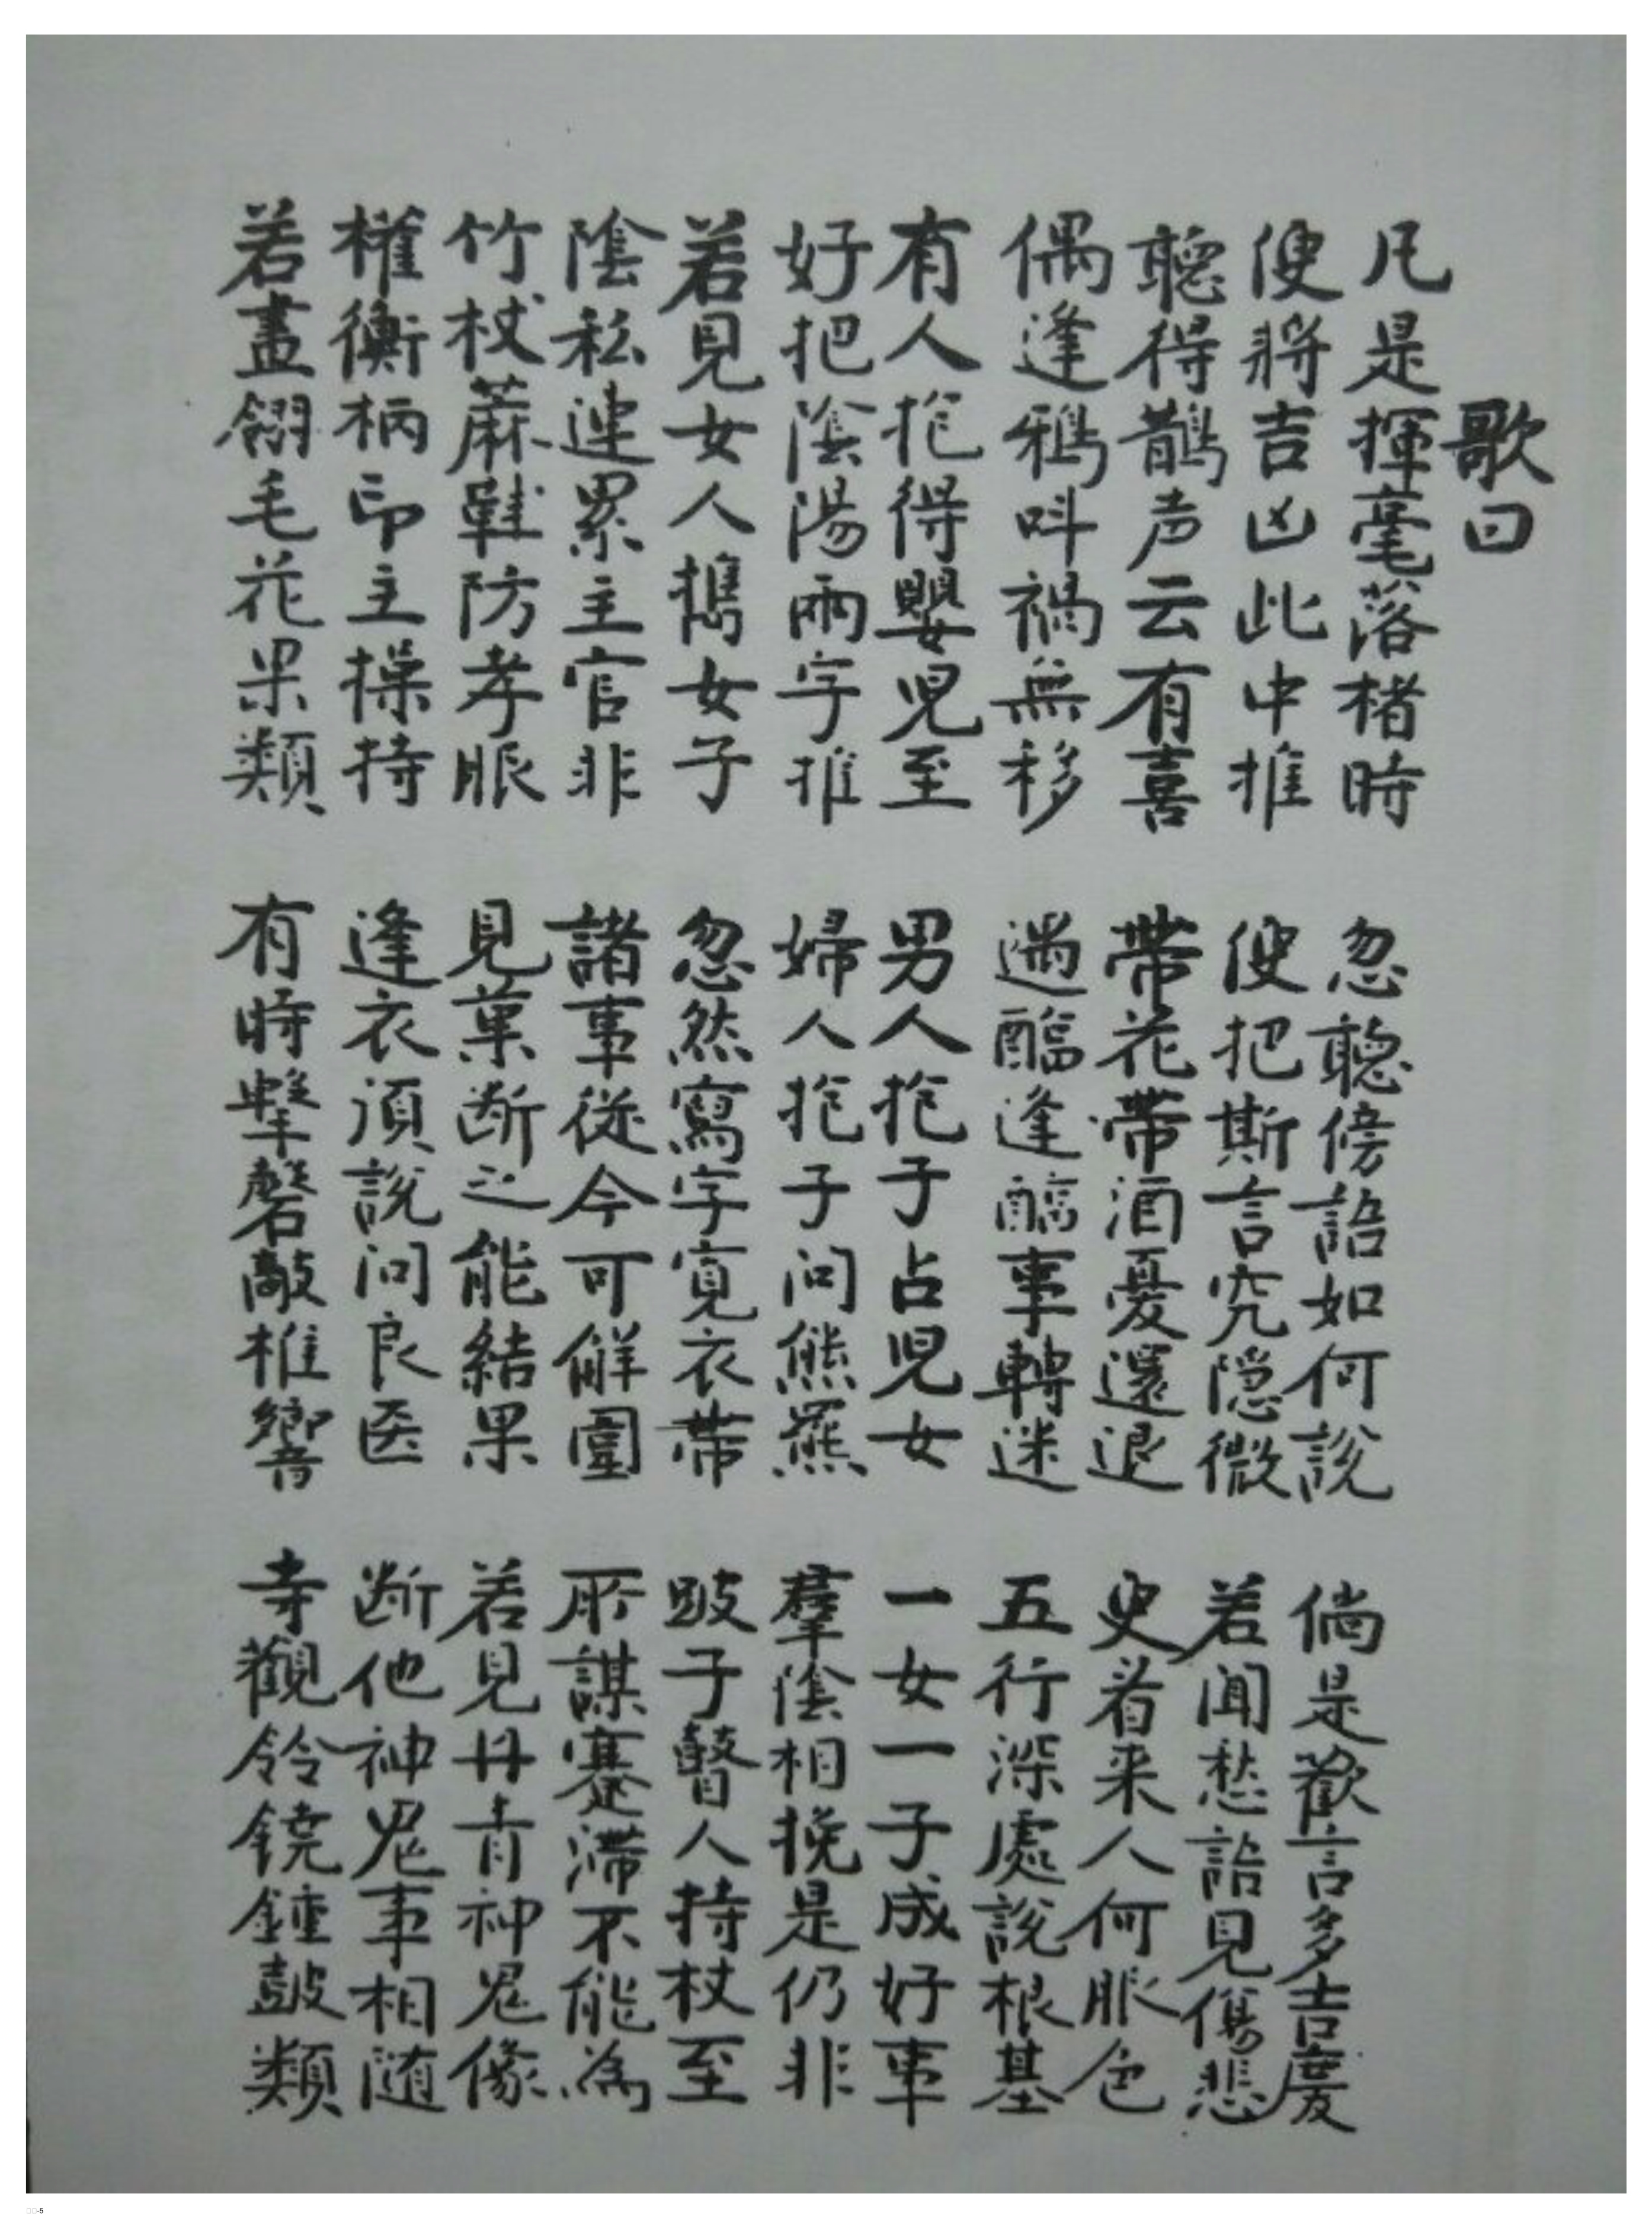 歌曰
凡是揮毫落楮時 忽聽傍語如何說 倘是歡言多吉慶
便將吉凶此中推 便把斯言究隐微 若闻愁語見傷悲
聽得鵲声云有喜 帶花帶酒憂還退 更看来人何服色
偶逢鴉呌禍無移 遇醯逢醢事轉迷 五行深處說根基
有人抱得嬰児至 男人抱子占児女 一女一子成好事
好把陰陽兩字推 婦人抱子问熊羆 羣陰相挽是仍非
若見女人携女子 忽然寫字寬衣帶 跛子瞽人持杖至
陰私連累主官非 諸事從今可解圍 所謀蹇滯不能為
竹杖蔴鞋防孝服 見菓断之能結果 若見丹青神鬼像
權衡柄印主操持 逢衣須說问良医 断他神鬼事相随
若畫翎毛花果類 有時擊磬敲椎響 寺觀鈴鐃鐘鼓類